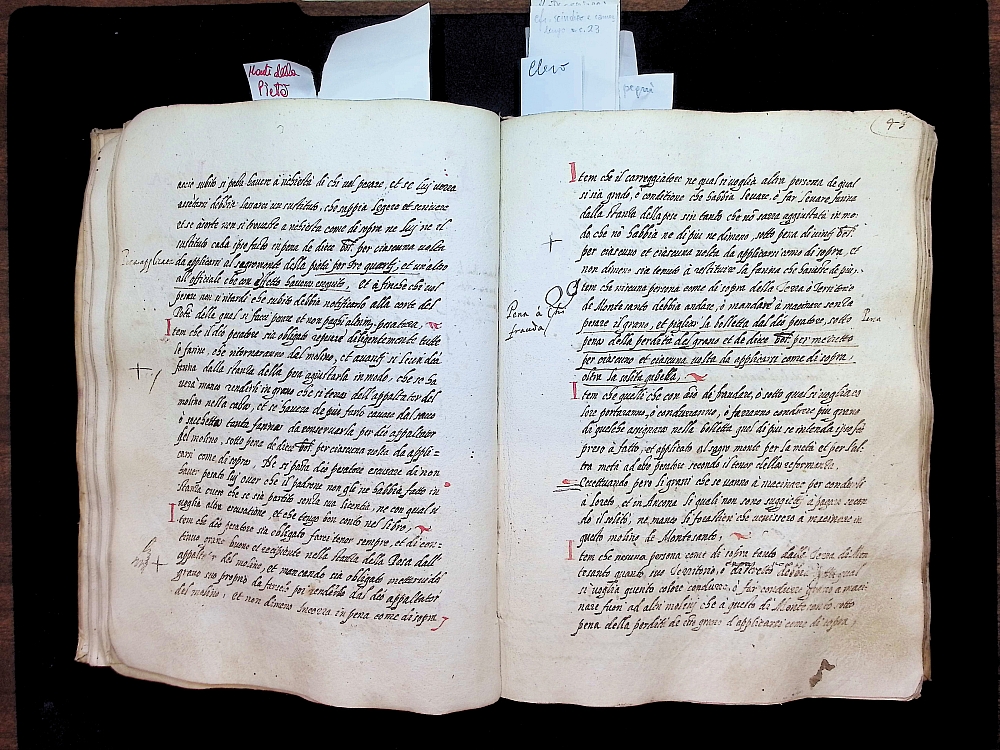 Monti della
Pietà
cfr. sindico e camer
lengo a c. 23
Clero
pegni
43
accio subito si possa havere à richiesta di chi vol pesare, et se lui vorrà
assentarsi debbia lassarci un sustituto, che sappia legere et scrivere
et se à sorte non si trovasse à richiesta come di sopra ne lui ne il
sustituto cada ipso fatto in pena di diece bol. per ciascuna volta
da applicarsi al sacro monte della pietà per tre quarti, et un altro
all'officiale che con effetto haverà exequito. Et à fin che col
pesare non si tardi che subito debbia notificarlo alla corte del
Potà della qual si facci pesare et non paghi alcuna pesatura
Item che il dio pesatore sia obligato repesare diligentemente tutte
le farine, che ritornaranno dal molino, et avanti si levi dea
farina dalla stantia della pesa agiustarla in modo, che se ha
verà manco renderli in grano che si tenerà dell'appaltator del
molino nella cassa, et se haverà de più farlo cavare dal sacco
ò sacchetta tanta farina da conservarla per dio appaltator
del molino, sotto pena de diece bol. per ciascuna volta da appli=
carsi come di sopra, Ne si possa dio pesatore excusare di non
haver pesato lui over che il padrone non gli ne habbia fatto in
stantia overo che se sia partito senza sua licentia, ne con qual si
voglia altra excusatione, et che tenga bon conto nel libro,
Item che dio pesatore sia obligato farci tener sempre, et di con=
tinuo grano buono et recipiente nella stantia della Pesa dall'
appaltator del molino, et mancando sia obligato mettervi del
grano suo proprio da farselo poi rendere dal dio appaltator
del molino, et non dimeno incorra in pena come di sopra
Item che il carreggiatore ne qual si voglia altra persona de qual
si sia grado, ò conditione che habbia levare, ò far levare farina
dalla stantia della pesa sin tanto che nò sarà aggiustata in mo=
do che nò habbia ne di più ne dimeno, sotto pena di vinti bol.
per ciascuno et ciascuna volta da applicarsi come di sopra, et
non dimeno sia tenuto à restituire la farina che havesse di più.
Item che nissuna persona come di sopra della Terra ò Territorio
de Monte santo debbia andare, ò mandare à macinare senza
pesare il grano, et pigliar la bolletta dal dio pesatore, sotto
pena della perdita del grano et de diece bol. per mezzetto
per ciascuno et ciascuna volta da applicarsi come di sopra,
oltra la solita gabella.
Pena à chi
frauda
Pena
Item che quelli che con arte de fraudare, ò sotto qual si voglia co
lore portaranno, ò conduranno, ò faranno condurre più grano
de quel che annotarà nella bolletta quel di più se intenda ipso fat
preso à fatto, et applicato al sacro monte per la metà et per l'al
tra metà ad esso pesatore secondo il tenor della reformanza.
Eccettuando però li grani che se vanno à macinare per condurli
à Loreto, et in Ancona li quali non sono suggietti à pagare secon
do il solito, ne mancho li forastieri che venissero à macinare in
questo molino de Monte santo,
Item che nessuna persona come di sopra tanto della Terra di Mon
te santo quanto suo Territorio, ò
si voglia quesito colore condurre, ò far condurre grano a maci=
nare fuori ad altri molini che à questo di Monte santo sotto
pena della perdita de esso grano d'applicarsi come di sopra,